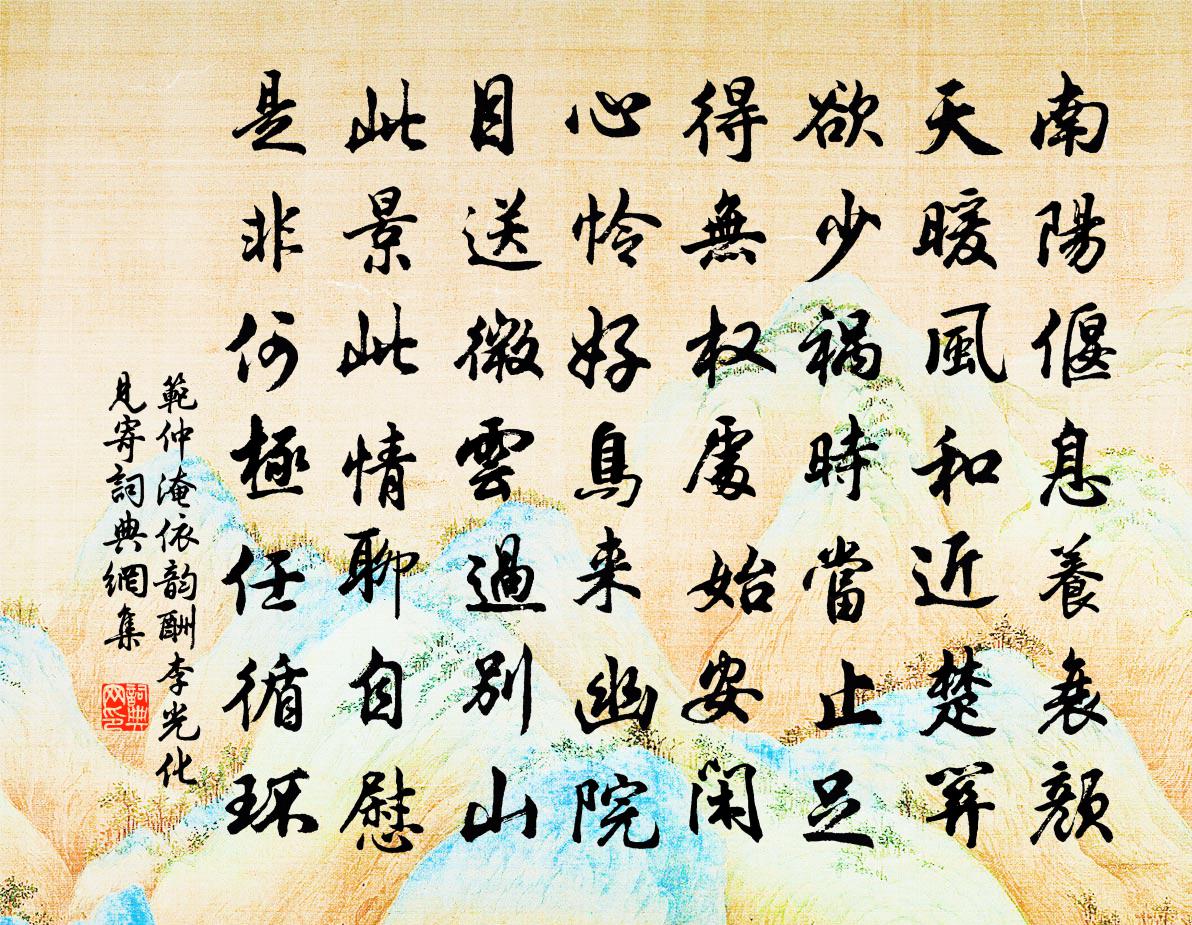 南陽偃息養衰顏
天暖風和近楚關
欲少禍時當止足
得無权處始安閑
心怜好鳥来幽院
目送微雲過別山
此景此情聊自慰
是非何極任循环
範仲淹依韵酬李光化
見寄詞典網集
詞典
网印